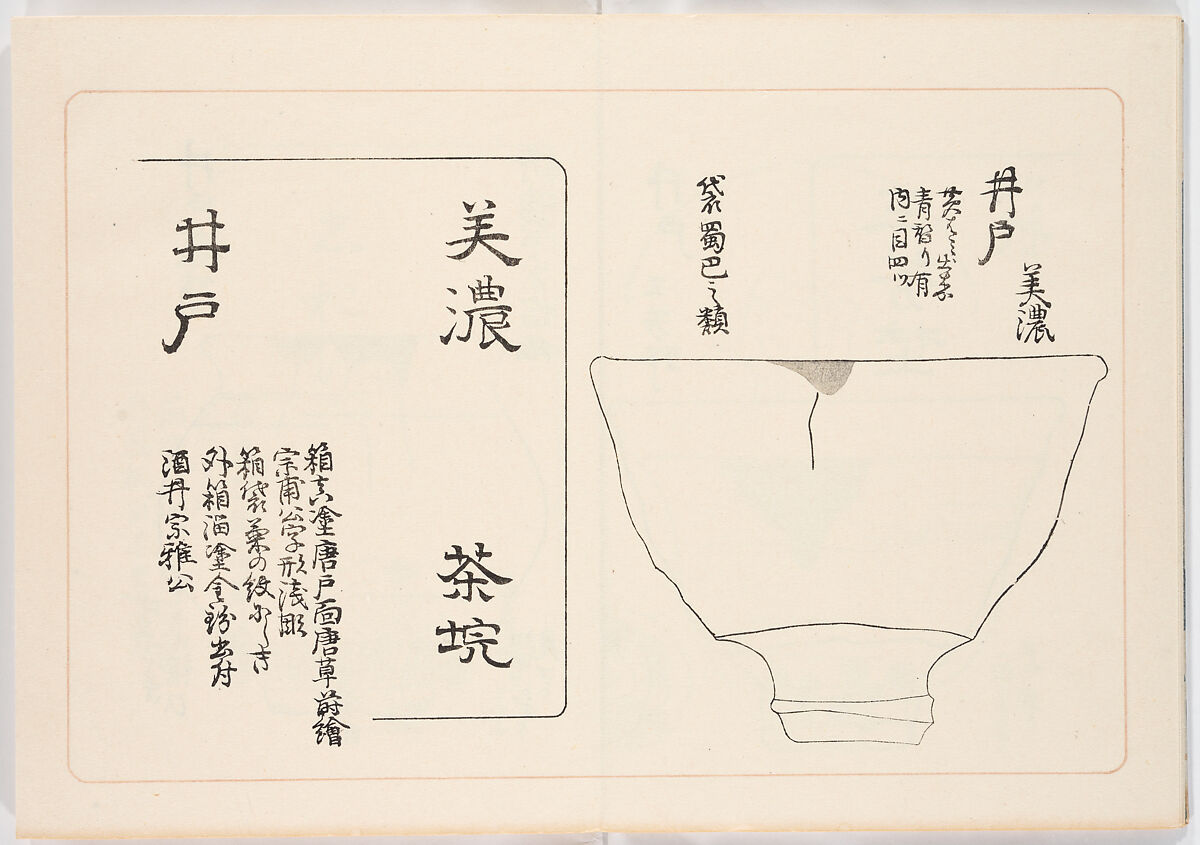 井戸
美濃
青替り有
内ニ目四ツ
袋蜀巴之類
美濃
茶垸
箱真塗唐戸面唐草蒔繪
宗甫公字形浅彫
箱袋の紋
外箱溜塗金粉書付
酒井宗雅公
井戸